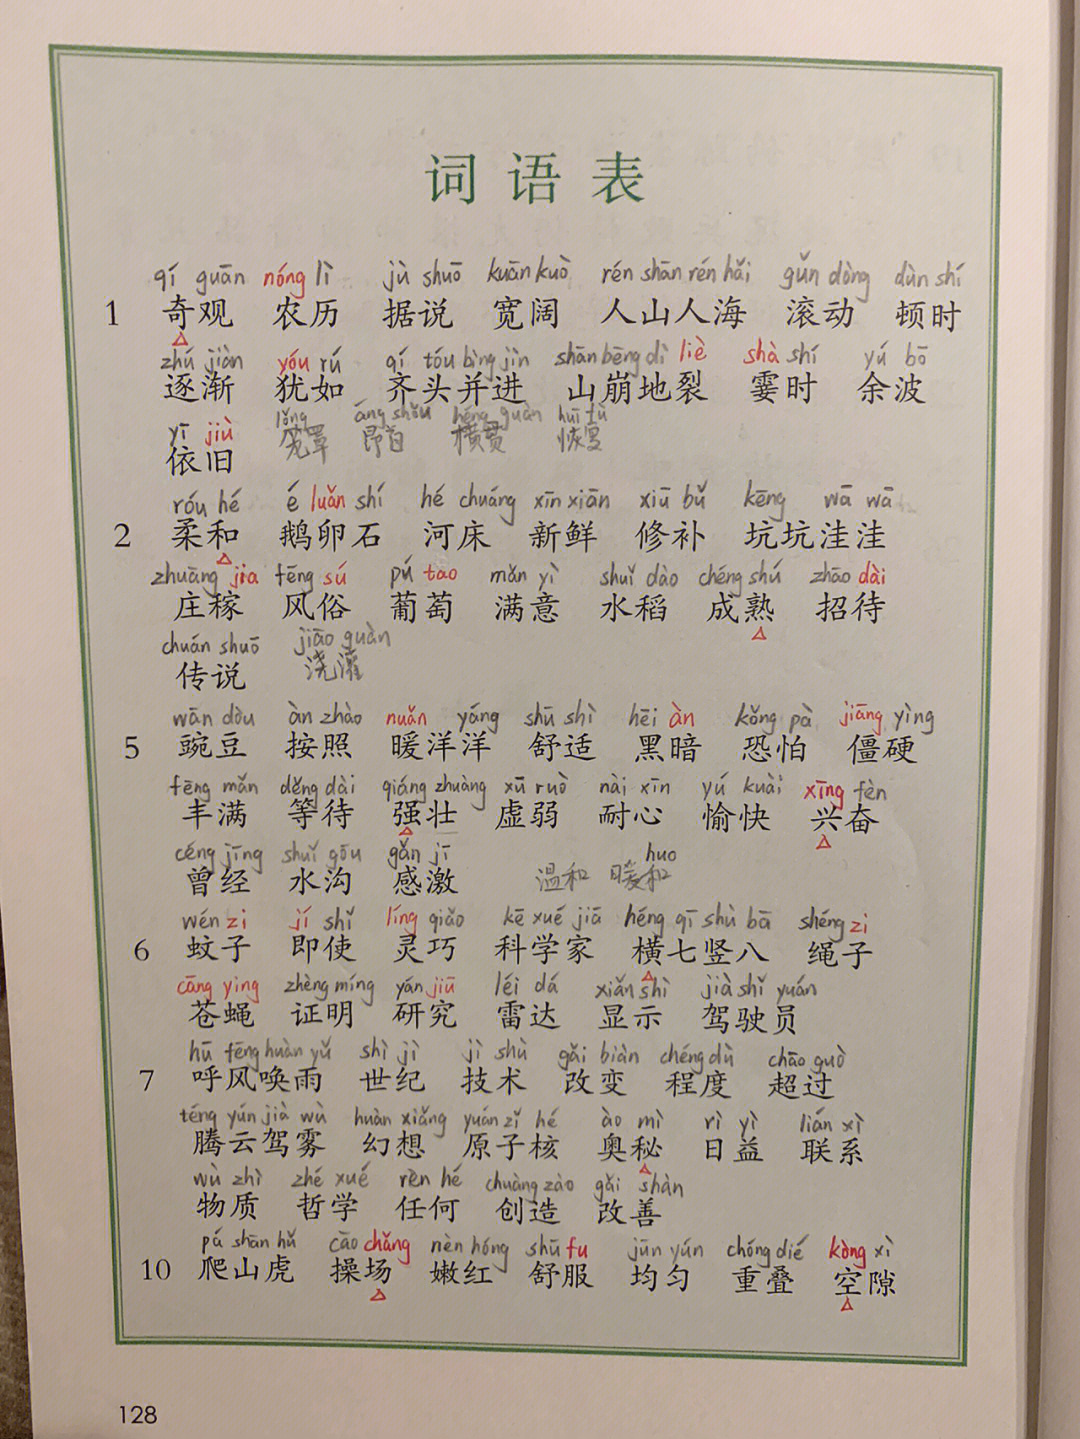 词语表
qí guān nóng lì jù shuō kuān kuò rén shān rén hǎi gǔn dòng dùn shí
1 奇观 农历 据说 宽阔 人山人海 滚动 顿时
zhú jiàn yóu rú qí tóu bìng jìn shān bēng dì liè shà shí yú bō
逐渐 犹如 齐头并进 山崩地裂 霎时 余波
yī jiù lǒng áng shǒu héng guàn huī fù
依旧 笼罩 昂首 横贯 恢复
róu hé é luǎn shí hé chuáng xīn xiān xiū bǔ kēng wā wā
2 柔和 鹅卵石 河床 新鲜 修补 坑坑洼洼
zhuāng jia fēng sú pú tao mǎn yì shuǐ dào chéng shú zhāo dài
庄稼 风俗 葡萄 满意 水稻 成熟 招待
chuán shuō jiāo guàn
传说 浇灌
wān dòu àn zhào nuǎn yáng shū shì hēi àn kǒng pà jiāng yìng
5 豌豆 按照 暖洋洋 舒适 黑暗 恐怕 僵硬
fēng mǎn děng dài qiáng zhuàng xū ruò nài xīn yú kuài xīng fèn
丰满 等待 强壮 虚弱 耐心 愉快 兴奋
céng jīng shuǐ gōu gǎn jī huo
曾经 水沟 感激 温和 暖和
wén zi jí shǐ líng qiǎo kē xué jiā héng qī shù bā shéng zi
6 蚊子 即使 灵巧 科学家 横七竖八 绳子
cāng ying zhèng míng yán jiū léi dá xiǎn shì jià shǐ yuán
苍蝇 证明 研究 雷达 显示 驾驶员
hū fēng huàn yǔ shì jì jì shù gǎi biàn chéng dù chāo guò
7 呼风唤雨 世纪 技术 改变 程度 超过
téng yún jià wù huàn xiǎng yuán zǐ hé ào mì rì yì lián xì
腾云驾雾 幻想 原子核 奥秘 日益 联系
wù zhì zhé xué rèn hé chuàng zào gǎi shàn
物质 哲学 任何 创造 改善
pá shān hǔ cāo chǎng nèn hóng shū fu jūn yún chóng dié kòng xì
10 爬山虎 操场 嫩红 舒服 均匀 重叠 空隙
128